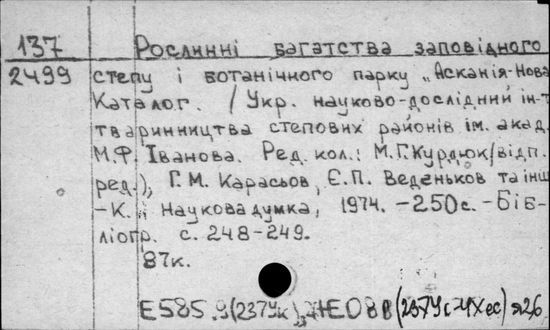 137 Рослинні багатства заповідного
2499 степу і ботанічного парку „Асканія-Нова
Каталог. / Укр. науково-дослідний ін-т
тваринництва степових районів ім. акад.
М.Ф. Іванова. Ред. кол.: М.Г. Курдюк/відп.
ред.), Г.М. Карасьов, Є.П. Веденьков та інш
-К.: Наукова думка, 1974. -250с. -Біб-
ліогр. с. 248-249.
87к.
Е585.9(237Ук)